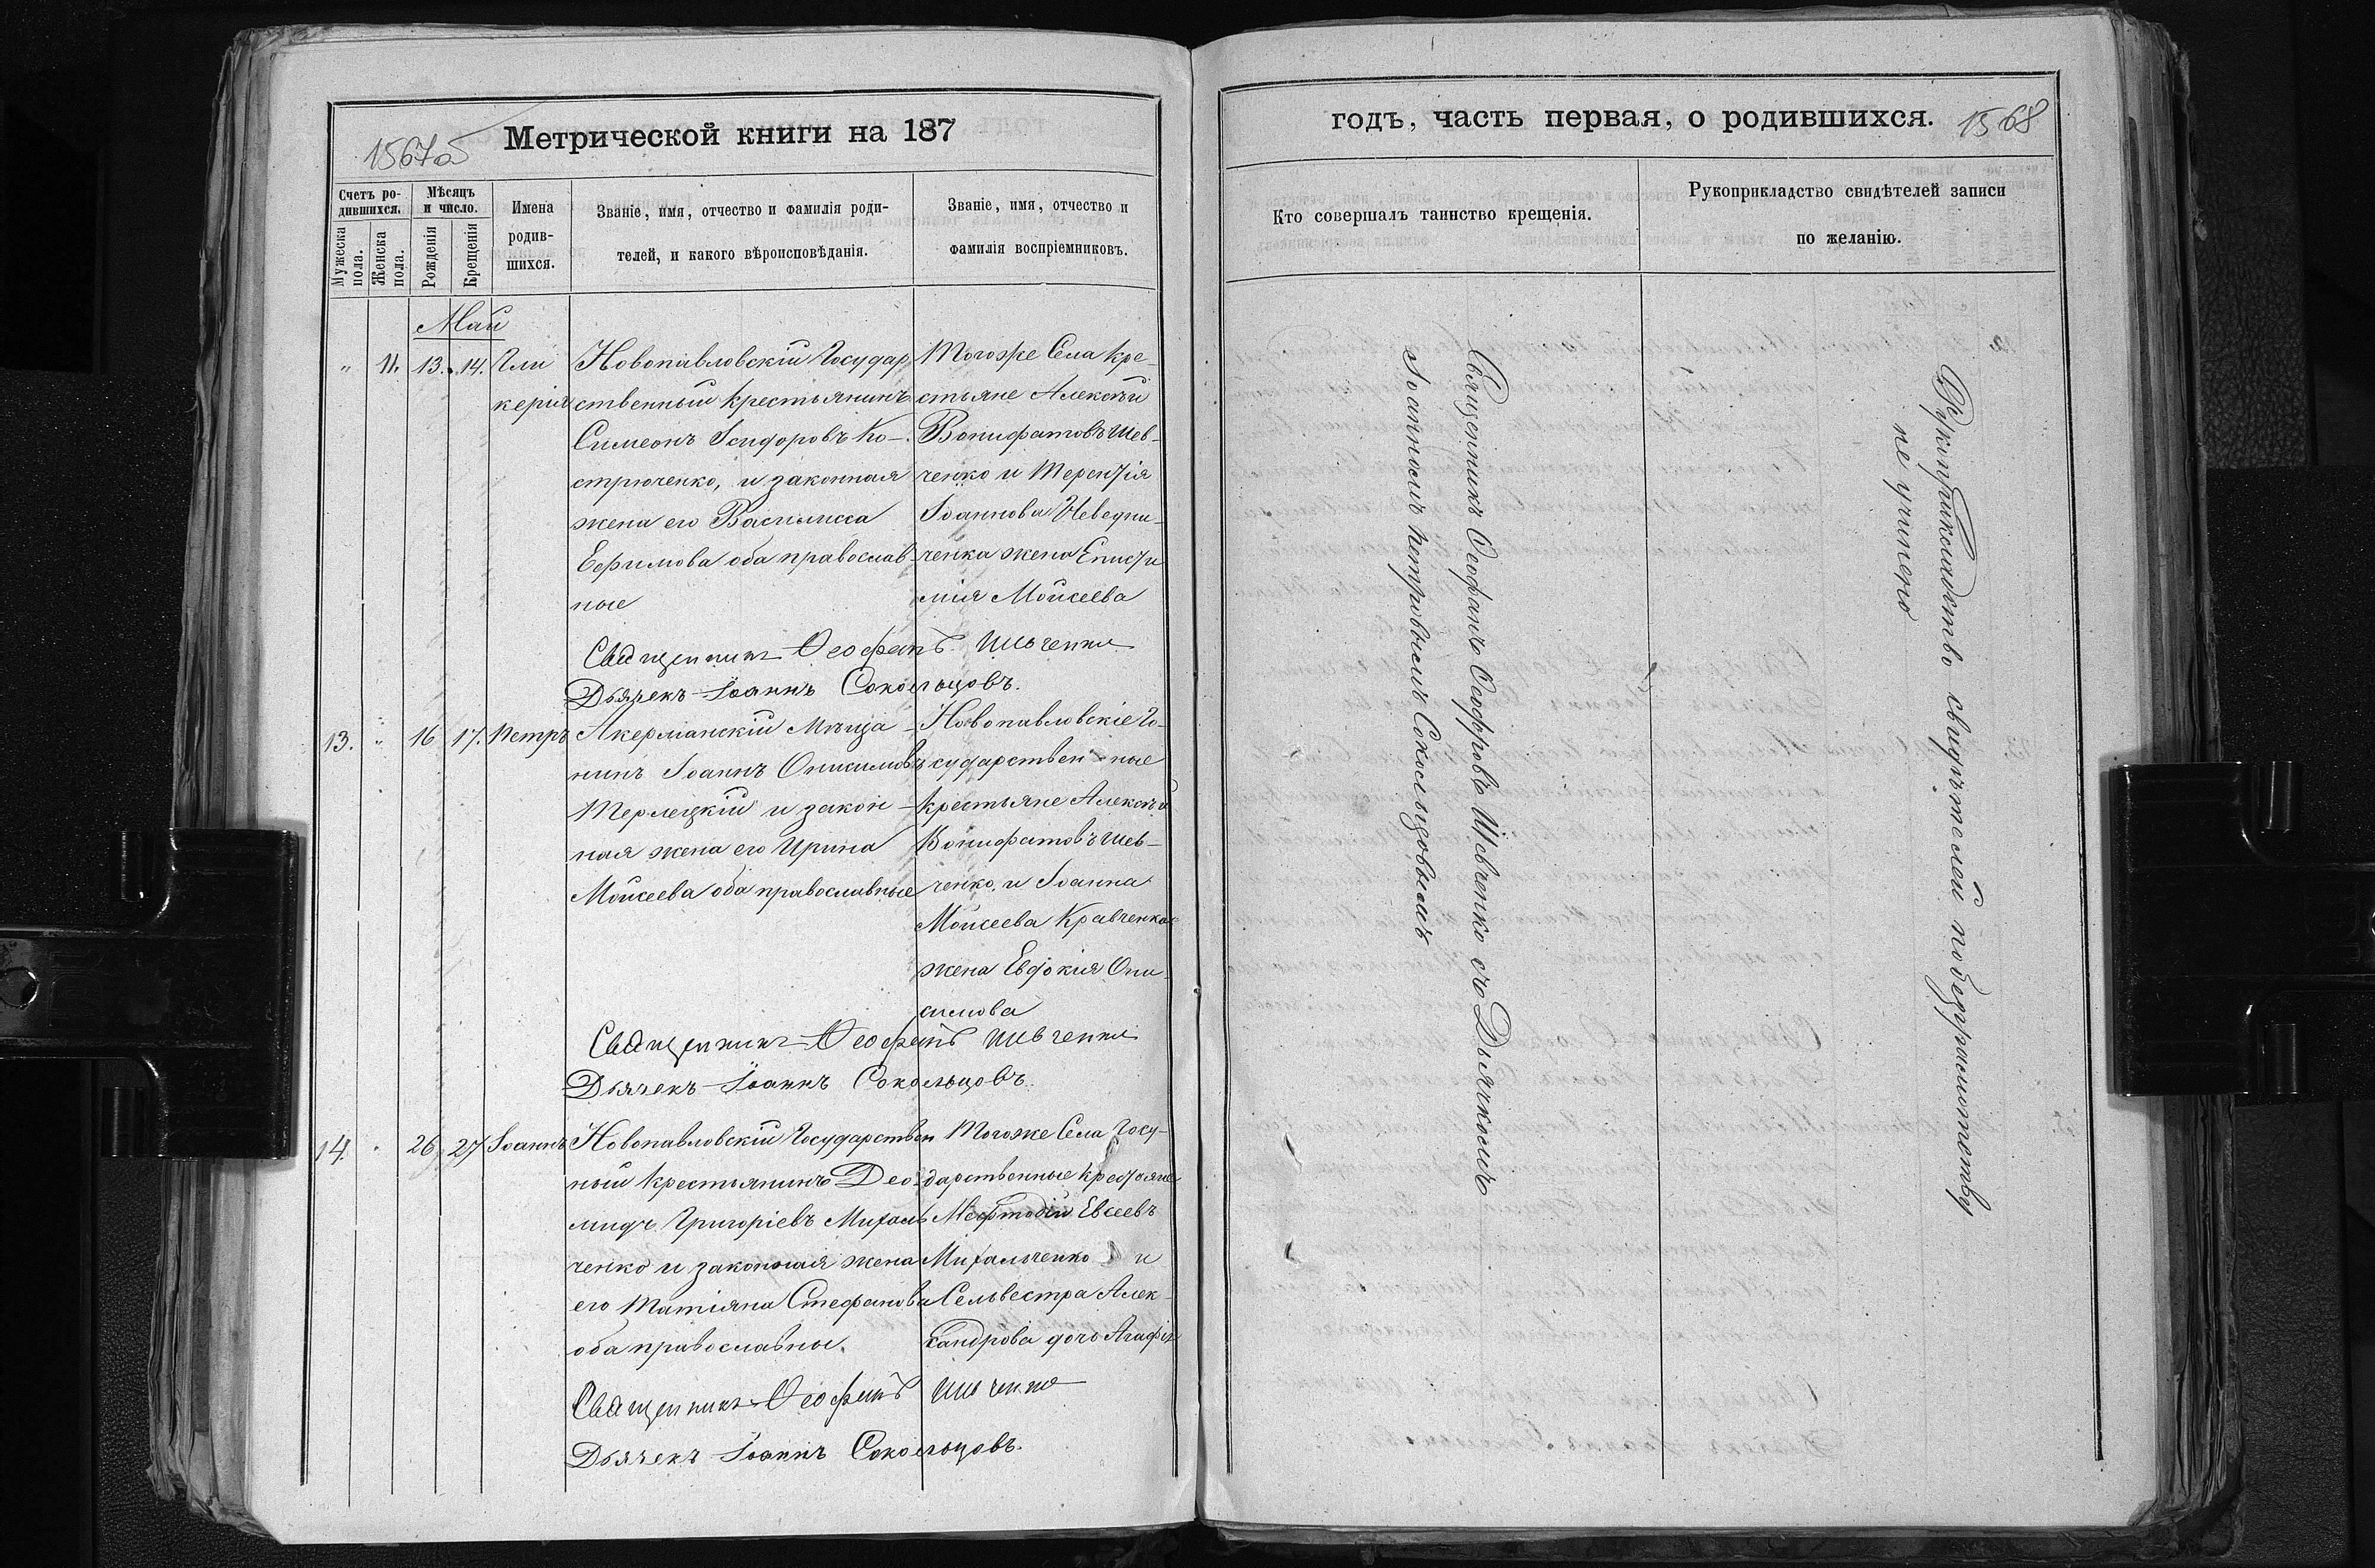 1567об
Метрической книги на 187
Счетъ ро-
дившихся.
Мужеска пола.
Женска пола.
Мѣсяцъ
и число.
Рожденія
Крещенія
Имена
родив-
шихся.
Званіе, имя, отчество и фамилія роди-
телей, и какого вѣроисповѣданія.
Званіе, имя, отчество и
фамилія воспріемниковъ.
Май
" 11. 13. 14. Гли
керія
Новопавловскій Государ
ственный крестьянинъ
Симеонъ Ісидоровъ Ко-
стрюченко, и законная
жена его Василисса
Ефимова оба православ-
ные
Тогоже Села кре-
стьяне Алексѣй
Вонифатовъ Шев-
ченко и Терентія
Іоаннова
ченка жена Епистı
мія Мойсеева
Священникъ Ѳеофанъ Шевченко
Дьячекъ Іоаннъ Сокольцовъ.
13. " 16 17. Петръ
Акерманскій Мѣща-
нинъ Іоаннъ Онисимовъ
Терлецкій и закон-
ная жена его Ирина
Мойсеева оба православные
Новопавловскіе Го-
сударственные
крестьяне Алексѣй
Вонифатовъ Шев-
ченко, и Іоанна
Моисеева Кравченка
жена Евдокія Они-
симова
Священникъ Ѳеофанъ Шевченко
Дьячекъ Іоаннъ Сокольцовъ.
14. " 26 27 Іоаннъ
Новопавловскій Государствен
ный крестьянинъ Део-
мидъ Григоріевъ Михаль
ченко и законная жена
его Татіяна Стефанова
оба православные.
Тогоже Села Госу-
дарственные крестьяне
Мефтодій Евсеевъ
Михальченко и
Сельвестра Алек-
сандрова дочь Агафія
Священникъ Ѳеофанъ Шевченко
Дьячекъ Іоаннъ Сокольцовъ.
годъ, часть первая, о родившихся.
1568
Кто совершалъ таинство крещенія.
Рукоприкладство свидѣтелей записи
по желанію.
Священникъ Ѳеофанъ Шевченко съ Дьячкомъ
Іоанномъ Петровымъ Сокольцовымъ
Рукоприкладство свидѣтелей по безграмотству
не учинено